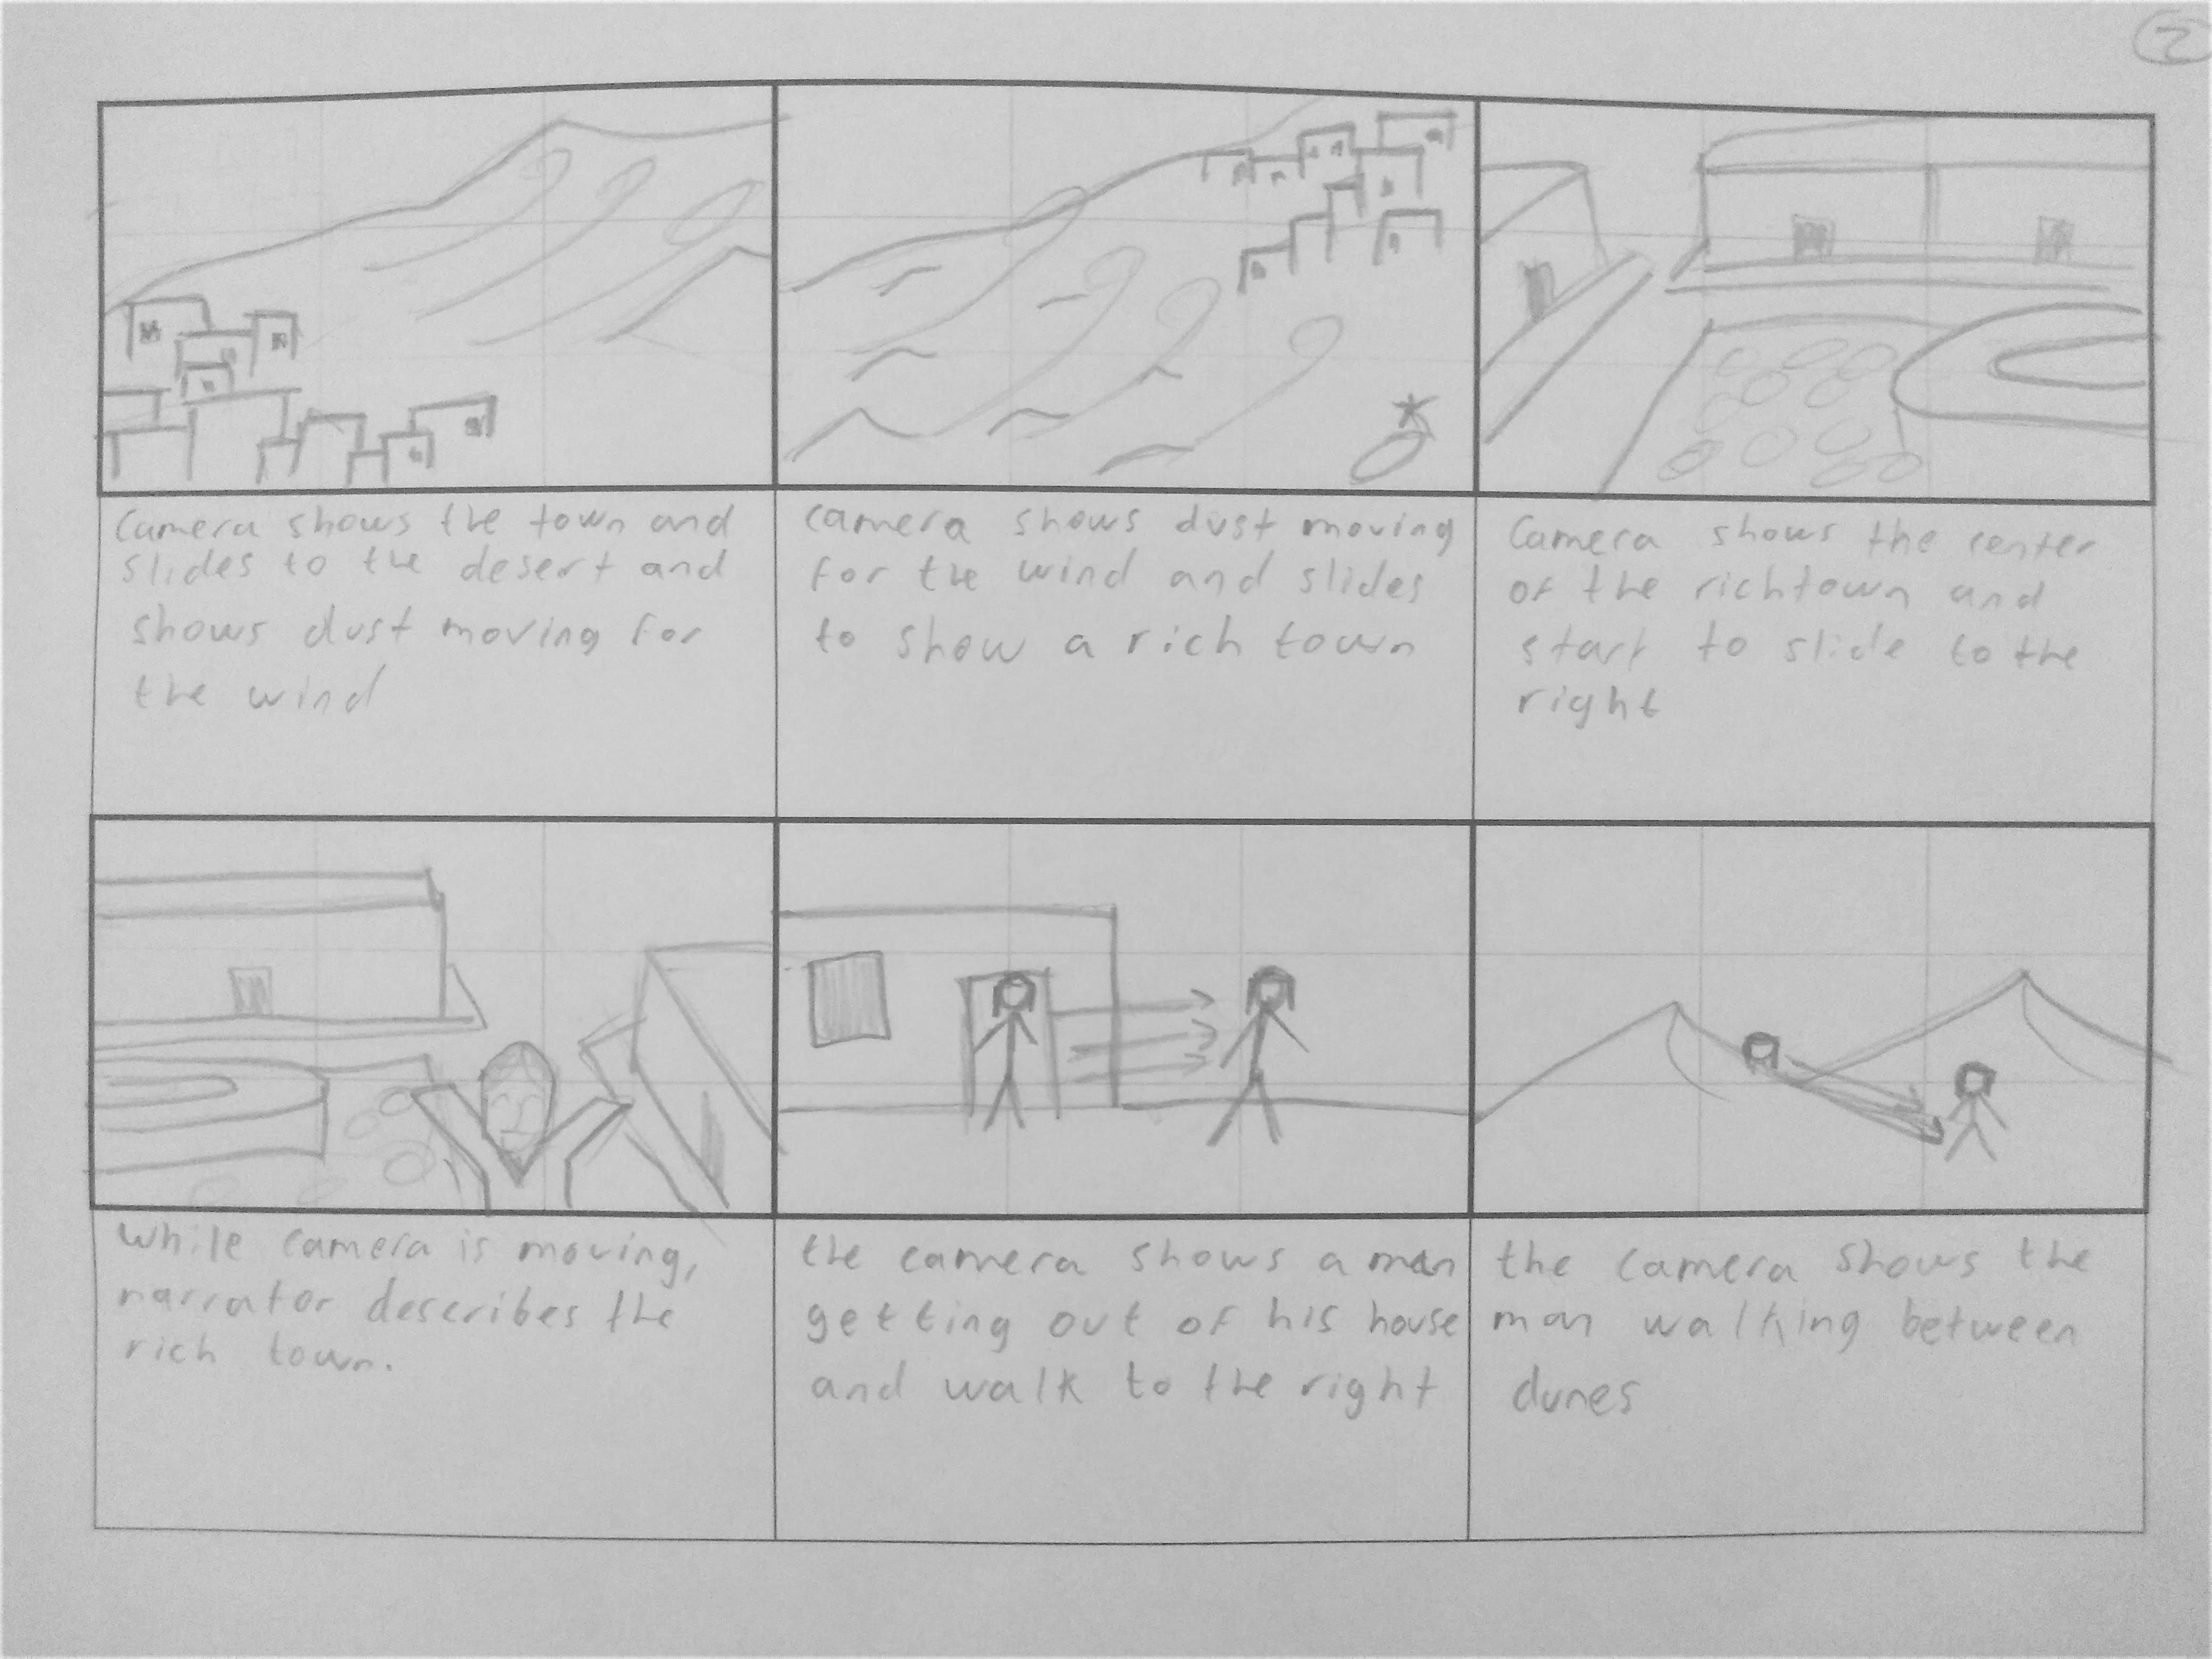 2
Camera shows the town and
slides to the desert and
shows dust moving for
the wind
camera shows dust moving
for the wind and slides
to show a rich town
Camera shows the center
of the richtown and
start to slide to the
right
While camera is moving,
narrator describes the
rich town.
the camera shows a man
getting out of his house
and walk to the right
the camera shows the
man walking between
dunes